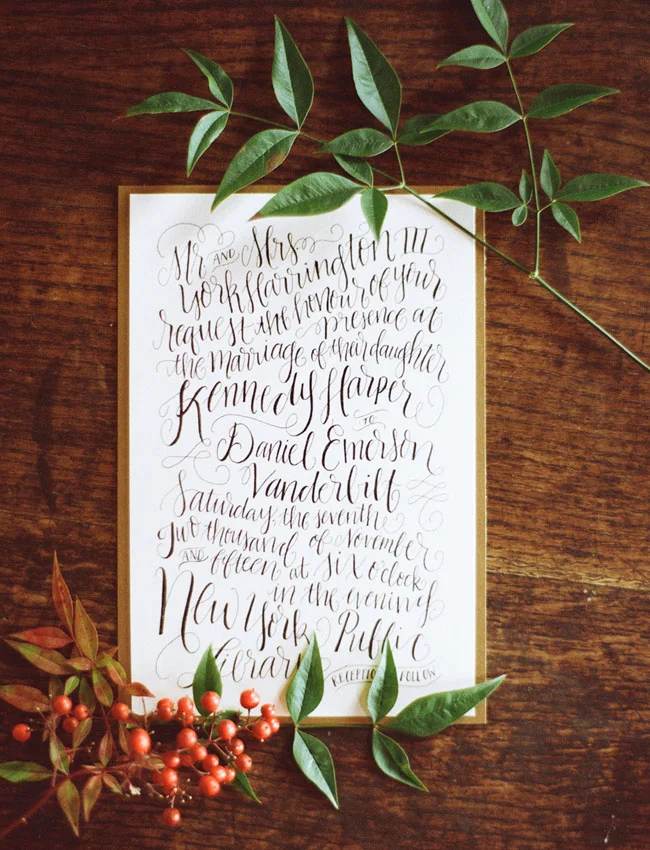 Mr AND Mrs
York Harrington III
request the honour of your
presence at
the marriage of their daughter
Kennedy Harper
TO
Daniel Emerson
Vanderbilt
Saturday, the seventh
of November
Two thousand
AND fifteen at six o'clock
in the evening
New York Public
Library